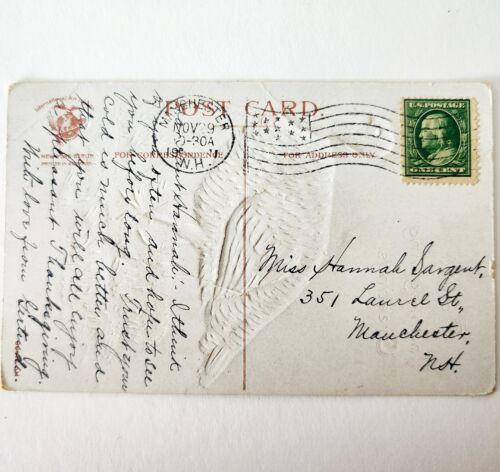 POST CARD
FOR CORRESPONDENCE
FOR ADDRESS ONLY
MANCHESTER
NOV 29
-30A
N.H.
U.S. POSTAGE
ONE CENT
Hannah:- I think
of you often and hope to see
you before long. Trust your
cold is much better and
that you will all enjoy
a pleasant Thanksgiving.
With love from Gertrude.
Miss Hannah Sargent,
351 Laurel St.,
Manchester,
N.H.